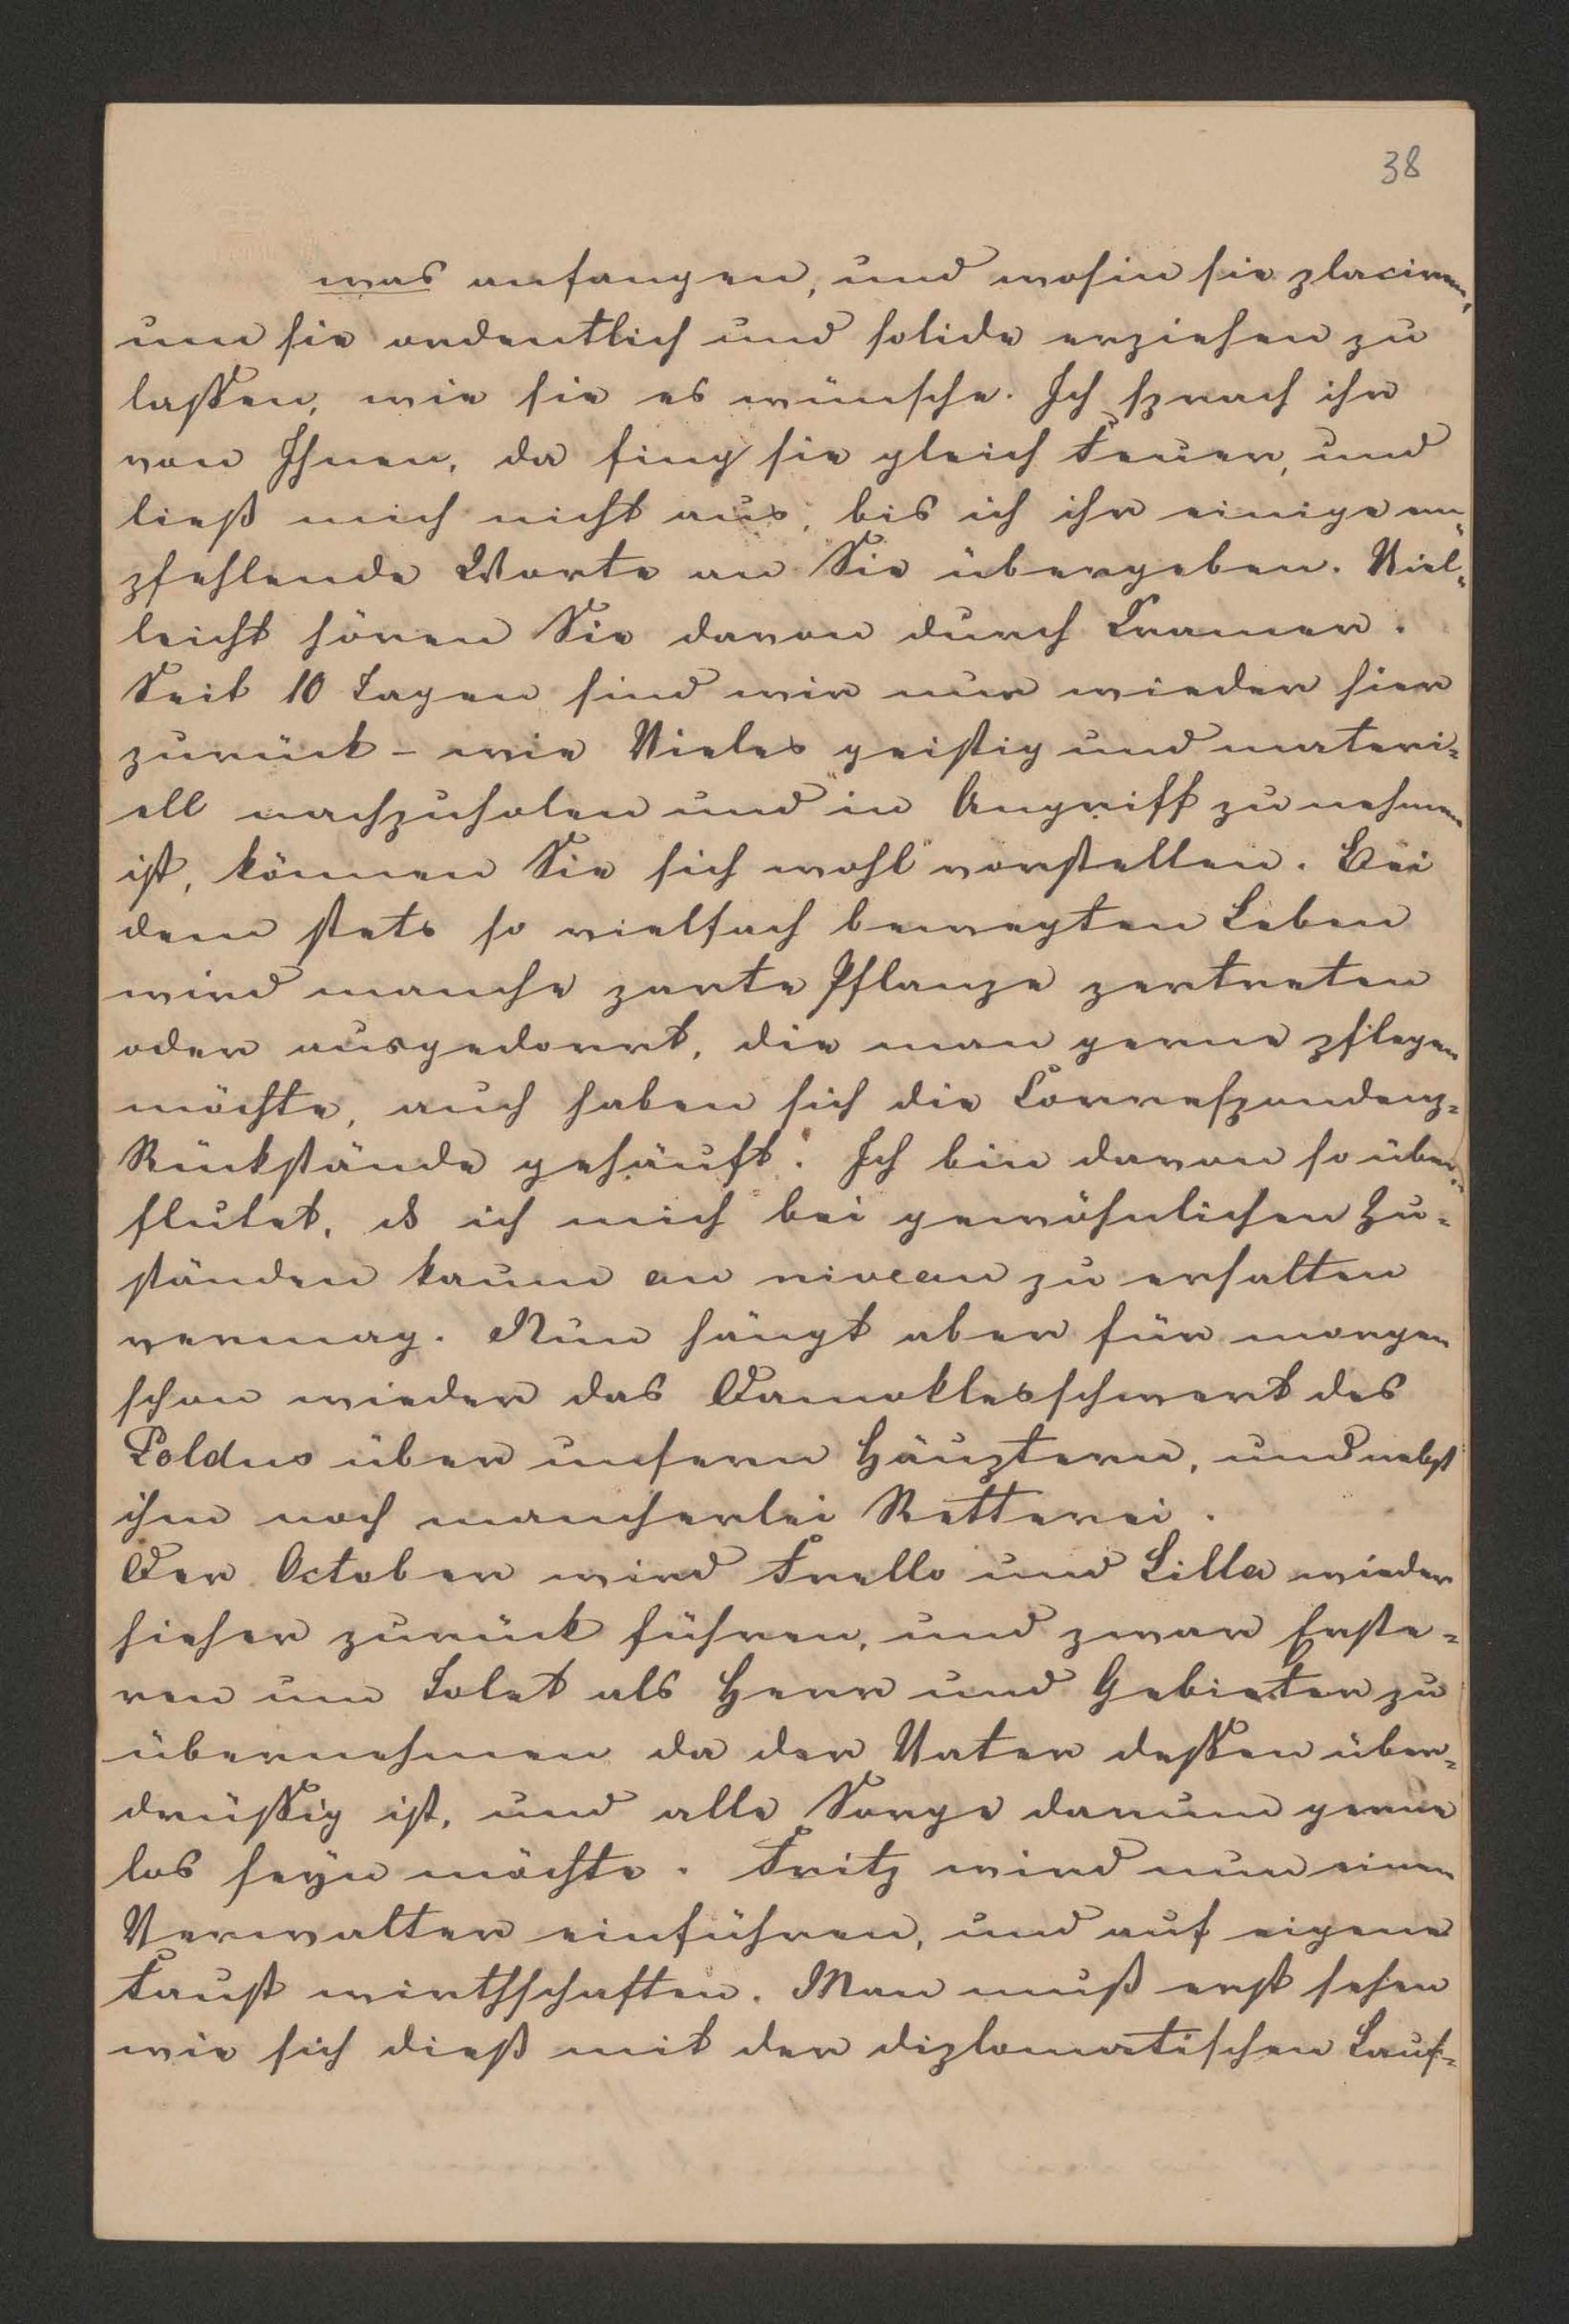 38
was anfangen, und wohin sie placiren,
um sie ordentlich und solide erziehen zu
lassen, wie sie es wünsche. Ich sprach ihr
von Ihnen, da fing sie gleich Feuer, und
ließ mich nicht aus, bis ich ihr einige em¬
pfehlende Worte an Sie übergeben. Viel¬
leicht hören Sie davon durch Cramer.
Seit 10 Tagen sind wir nun wieder hier
zurück – wie Vieles geistig und materi¬
ell nachzuholen und in Angriff zu nehmen
ist, können Sie sich wohl vorstellen. Bei
dem stets so vielfach bewegten Leben
wird manche zarte Pflanze zertreten
oder ausgedorrt, die man gerne pflegen
möchte, auch haben sich die Correspondenz¬
Rückstände gehäuft. Ich bin davon so über¬
flutet, ds ich mich bei gewöhnlichen Zu¬
ständen kaum au niveau zu erhalten
vermag. Nun hängt aber für morgen
schon wieder das Damoklesschwert des
Poldus über unsern Häuptern, und nebst
ihm noch mancherlei Retterei.
Der October wird Frello und Lilla wieder
hieher zurück führen, und zwar Erste¬
ren um Solet als Herr und Gebieter zu
übernehmen da der Vater dessen über¬
drüssig ist, und alle Sorge darum gerne
los seyn möchte. Fritz wird nun einen
Verwalter einführen, und auf eigene
Faust wirthschaften. Man muß erst sehen
wie sich dieß mit der diplomatischen Lauf¬